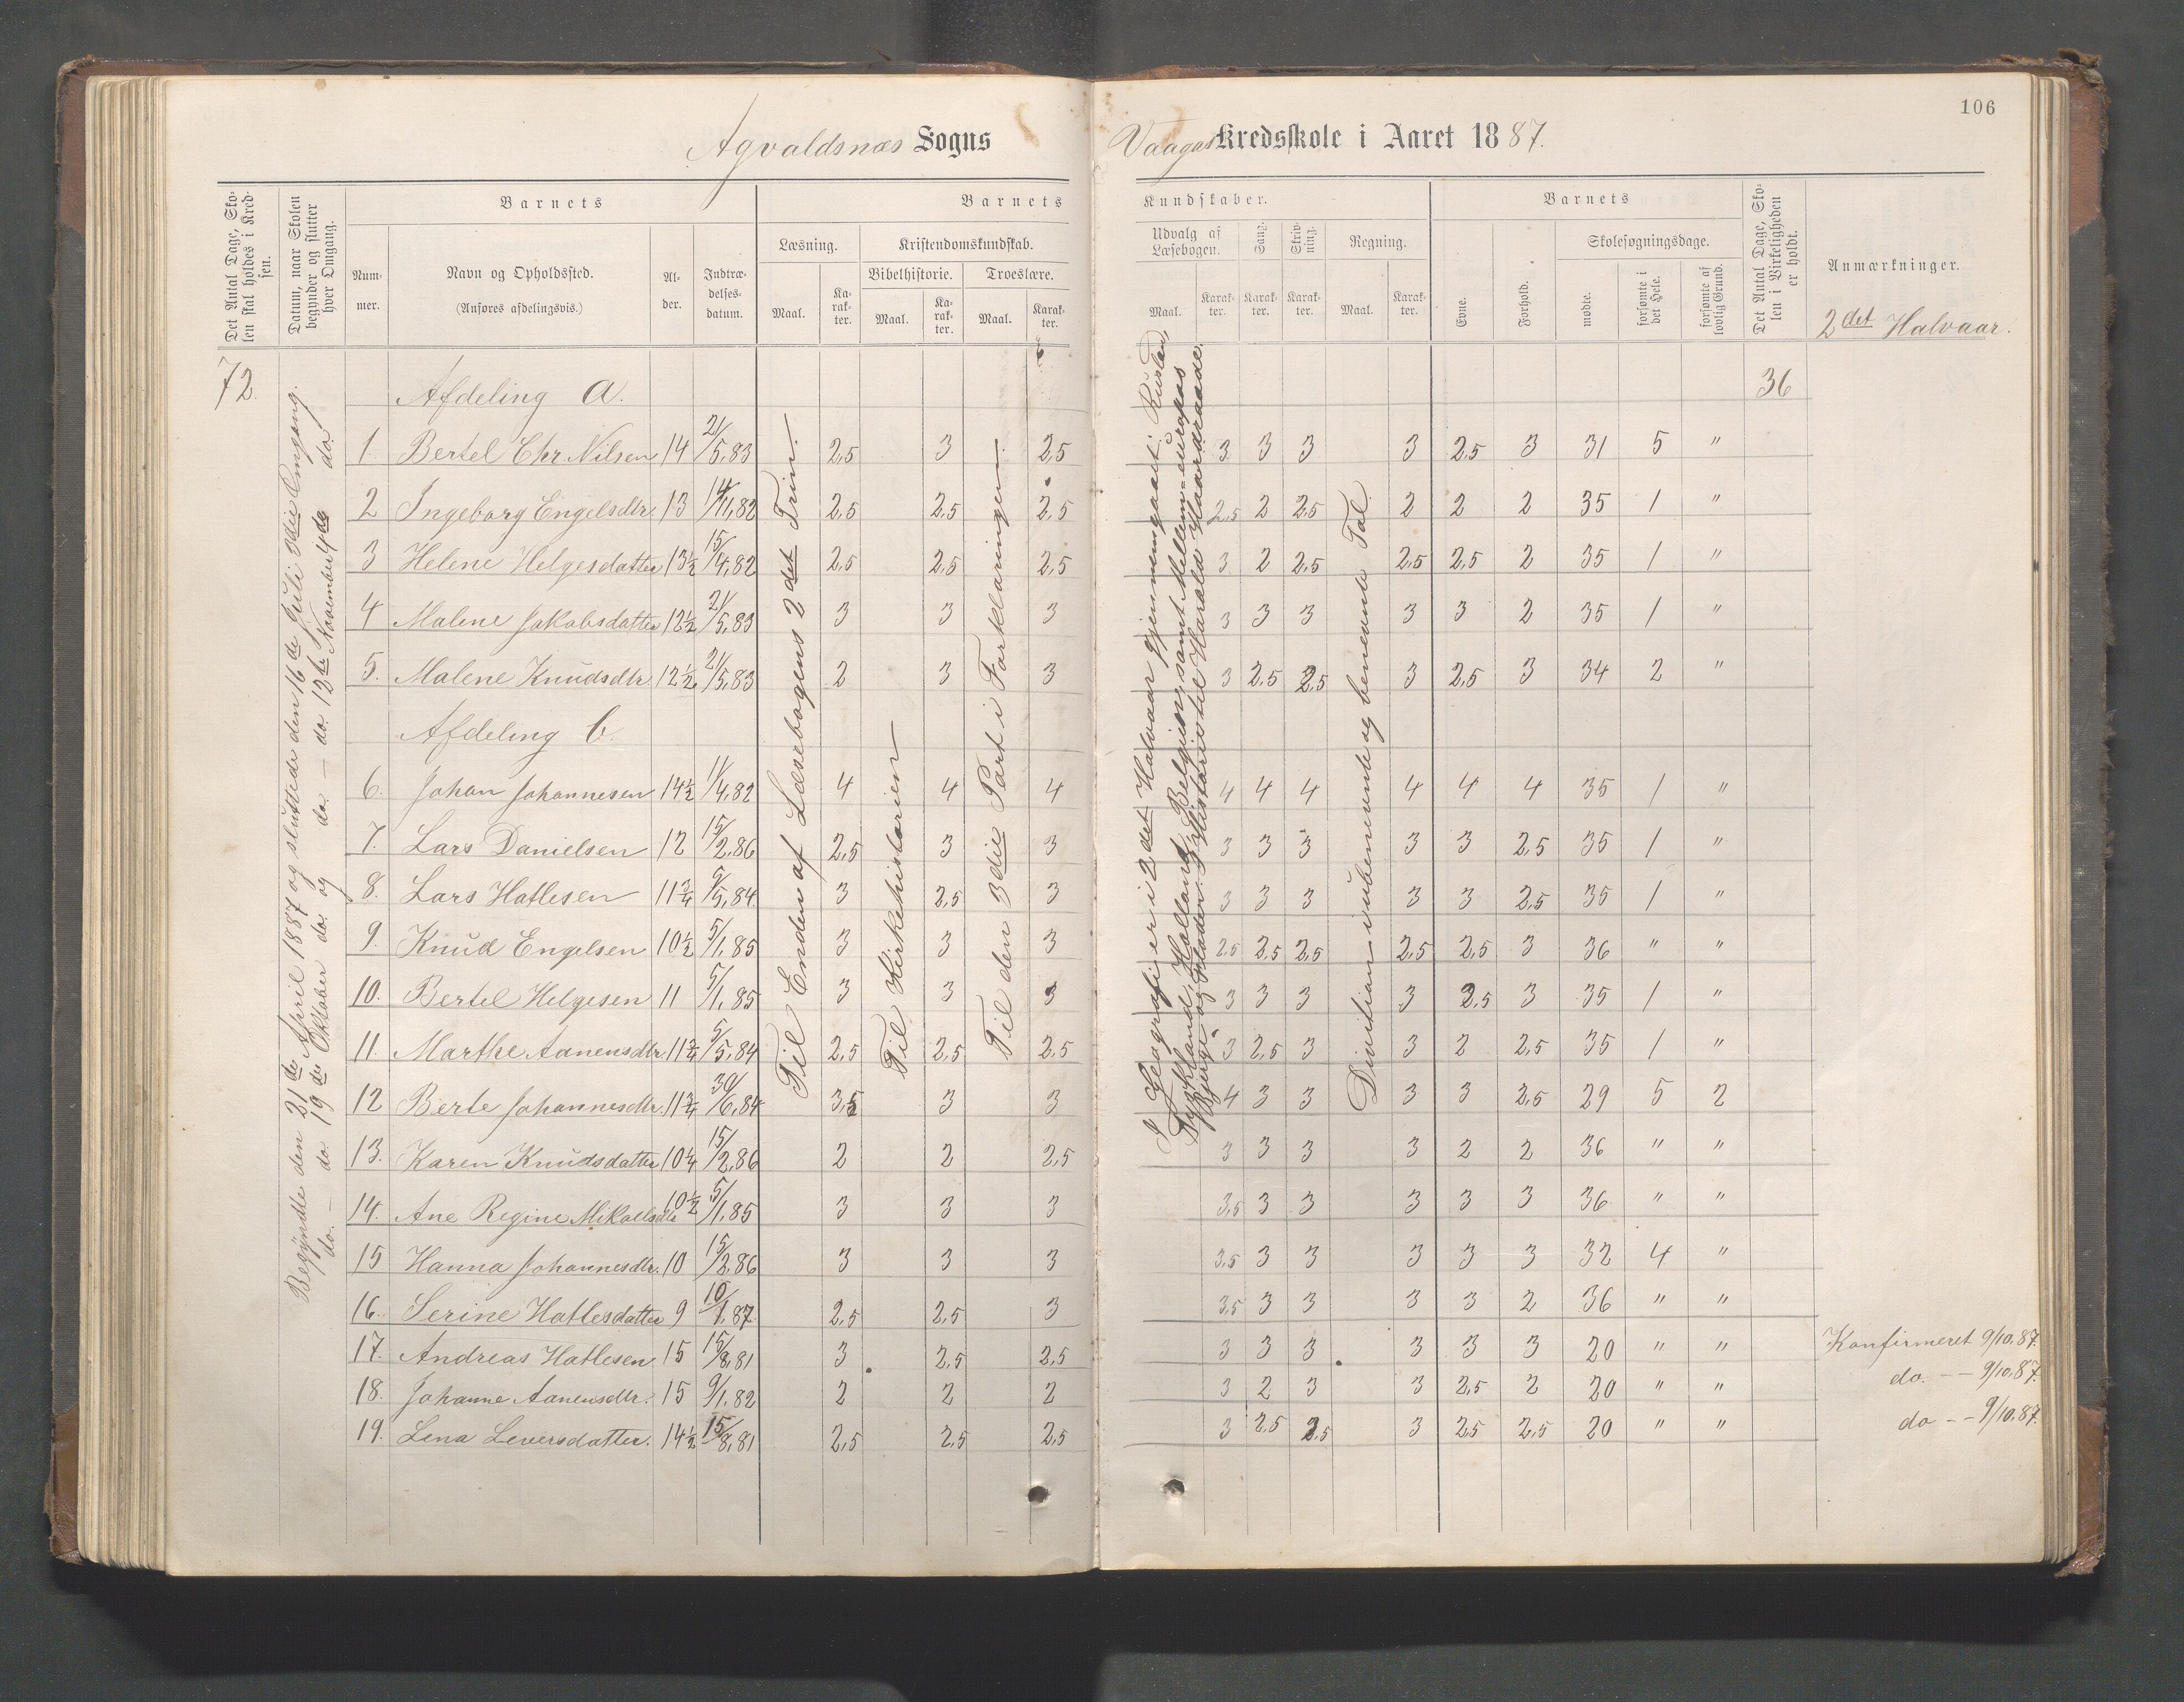 106
Agvaldsnæs Sogns
Vaagas Kredsskole i Aaret 1887.
Det Antal Dage, Sko-
len skal holdes i Kred-
sen.
Datum, naar Skolen
begynder og slutter
hver Omgang.
Barnets
Num-
mer.
Navn og Opholdssted.
(Anføres afdelingsvis.)
Al-
der.
Indtræ-
delses-
datum.
Barnets
Læsning.
Maal.
Ka-
rak-
ter.
Kristendomskundskab.
Bibelhistorie.
Maal.
Ka-
rak-
ter.
Troeslære.
Maal.
Karak-
ter.
Kundskaber.
Udvalg af
Læsebogen.
Maal.
Karak-
ter.
Sang.
Karak-
ter.
Skriv-
ning.
Karak-
ter.
Regning.
Maal.
Karak-
ter.
Barnets
Evne.
Forhold.
Skolesøgningsdage.
mødte.
forsømte i
det Hele.
forsømte af
lovlig Grund.
Det Antal Dage, Sko-
len i Virkeligheden
er holdt.
Anmærkninger.
2det Halvaar.
72.
Begyndte den 21de April 1887 og sluttede den 16de Juli 3die Omgang.
do. — do 19de Oktober do. og do. — do. 12te November 4de do.
Til Enden af Læsebogens 2det Trin.
Til Kirkehistorien
Til den 3die Part i Forklaringen.
I Geografi er i 2det Halvaar gjennemgaaet: Rusland,
Tyskland, Holland, Belgien, samt Mellem-europas
Bjerge og Floder. I Historie til Harald Haardraade.
Division i ubenævnte og benævnte Tal.
Afdeling a. 36
1. Bertel Chr. Nilsen 14 21/5,83 2,5 3 2,5 3 3 3 3 2,5 3 31 5 "
2 Ingeborg Engelsdtr. 13 14/11,82 2,5 2,5 2,5 2,5 2 2,5 2 2 2 35 1 "
3 Helene Helgesdatter 13½ 15/4,82 2,5 2,5 2,5 3 2 2,5 2,5 2,5 2 35 1 "
4 Malene Jakobsdatter 12½ 21/5,83 3 3 3 3 3 3 3 3 2 35 1 "
5. Malene Knudsdtr. 12½ 21/5,83 2 3 3 3 2,5 2,5 3 2,5 3 34 2 "
Afdeling b.
6. Johan Johannesen 14½ 11/4,82 4 4 4 4 4 4 4 4 4 35 1 "
7. Lars Danielsen 12 15/2,86 2,5 3 3 3 3 3 3 3 2,5 35 1 "
8. Lars Hatlesen 11¾ 5/5,84. 3 2,5 3 3 3 3 3 3 2,5 35 1 "
9. Knud Engelsen 10½ 5/1,85 3 3 3 2,5 2,5 2,5 2,5 2,5 3 36 " "
10. Bertel Helgesen 11 5/1,85 3 3 3 3 3 3 3 2,5 3 35 1 "
11. Marthe Aanensdtr. 11¾ 5/5,84 2,5 2,5 2,5 3 2,5 3 3 2 2,5 35 1 "
12 Berte Johannesdtr. 11¾ 30/6,84 3,5 3 3 4 3 3 3 3 2,5 29 5 2
13. Karen Knudsdatter 10¼ 15/2,86 2 2 2,5 3 3 3 3 2 2 36 " "
14. Ane Regine Mikalsdtr 10½ 5/1,85 3 3 3 3,5 3 3 3 3 3 36 " "
15 Hanna Johannesdtr. 10 15/2,86 3 3 3 3,5 3 3 3 3 3 32 4 "
16. Serine Hatlesdatter 9 10/1,87 2,5 2,5 3 3,5 3 3 3 3 2 36 " "
17. Andreas Hatlesen 15 15/8,81 3 2,5 2,5 3 3 3 3 3 3 20 " " Konfirmeret 9/10.87.
18. Johanne Aanensdtr. 15 9/1.82 2 2 2 3 2 3 3 2,5 2 20 " " do. — — 9/10,87.
19. Lena Leversdatter. 14½ 15/8,81 2,5 2,5 2,5 3 2,5 2,5 3 2,5 2,5 20 " " do — — 9/10.87.